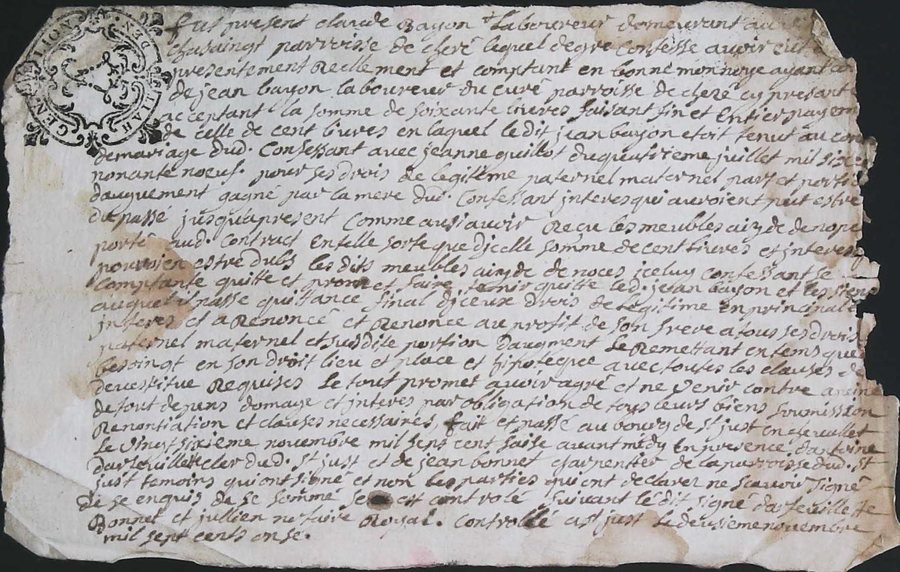 GEN. DE LION
fut present claude Bayon laboureur demeurant au
chasaingt parroisse de cheré lequel de gre confesse avoir eut
presentement Reellement et comptant en bonne monnoye ayant co
de jean bayon laboureur du curé parroisse de cheré cy present
acceptant la somme de soixante livres faisant fin et Entier payem
de celle de cent livres en laquel le dit jean bayon etoit tenut au con
de mariage dud. Confessant avec jeanne guillot du quatrieme juillet mil six
nonante noeuf. pour ses drois de legitime paternel maternel part et porti
daugement gagné par la mere dud. Confessant interes qui auroient peut estre
du passé jusqua present Comme aussi avoir Reçu les meubles ayde de nopce
porté aud. Contract En telle sorte que dicelle somme de cent livres et interes
pouvoien estre dubs les dits meubles ayde de noces iceluy confessant se
comptante quitte et promet faire tenir quitte led. jean bayon et les siens
auquel il passe quittance final diceux drois de legitime en principal
interes et a Renoncé et Renonce au profit de son frere a tous ses drois
paternel maternel et susdite portion Daugment Le Remettant en tems que
besoingt en son droit lieu et place et hipoteque avec toutes les clauses de
devestitue Requises Le tout promet avoir agré et ne venir contre a peine
de tout depens domage et interes par obligation de tous ceurs biens soumission
Renontiation et clauses necessaires, fait et passé au bourg de St just en chevallet
Le vingt sixieme novembre mil sept cent saise avant midy En presence dantoine
dasfeuille cler dud. St just et de jean bonnet charpentier de la parroisse dud. St
just temoins qui ont signé et non les parties qui ont declarer ne scavoir signé
de ce enquis de ce sommé controlé suivant lédit signé dasfeuille
Bonnet et jullien notaire Royal. Controllé a st just le deusieme novembre
mil sept cents onse.